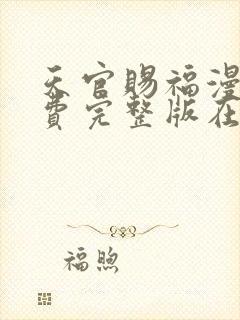 天官赐福漫
费完整版在
福煦